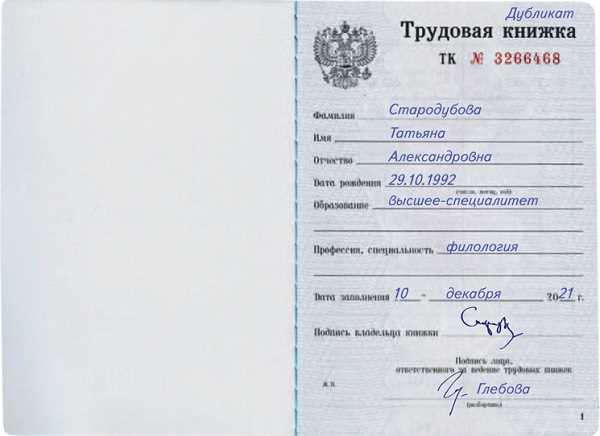 Дубликат
Трудовая книжка
ТК № 3266468
Фамилия Стародубова
Имя Татьяна
Отчество Александровна
Дата рождения 29.10.1992
(число, месяц, год)
Образование высшее-специалитет
Профессия, специальность филология
Дата заполнения 10 - декабря 2021 г.
Подпись владельца книжки
Подпись лица,
ответственного за ведение трудовых книжек
М.П. Глебова
(разборчиво)
1